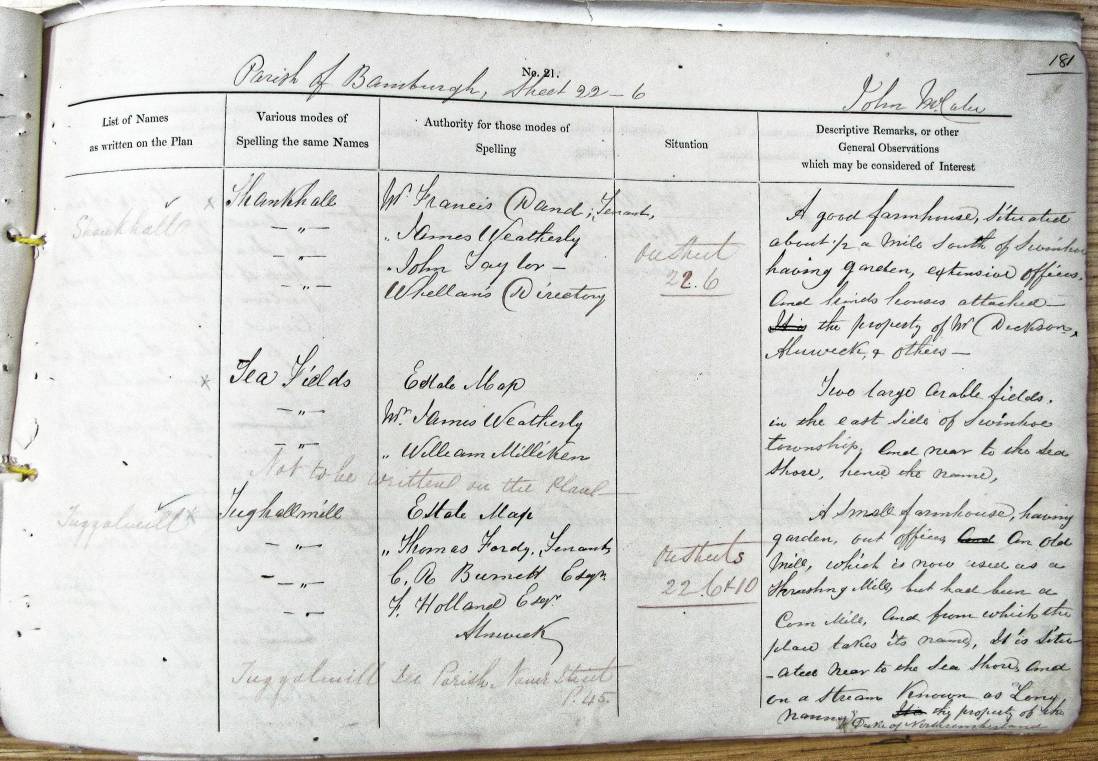 181
No. 21.
Parish of Bamburgh, Sheet 22-6
John McCabe
List of Names
as written on the Plan
Various modes of
Spelling the same Names
Authority for those modes of
Spelling
Situation
Descriptive Remarks, or other
General Observations
which may be considered of Interest
Shankhall
Shankhall
Mr Francis Dand; Tenant,
-"- „ James Weatherly
-"- „ John Taylor -
-"- Whellan's Directory
On Sheet
22.6
A good farmhouse, situated
about ½ a mile South of Swinhoe
having garden, extensive offices,
and hinds houses attached -
It is the property of Mr Dickson,
Alnwick, & others -
Sea Fields
Estate Map
-"- Mr. James Weatherly
-"- „ William Milliken
Not to be written on the Plan
Two large arable fields,
in the east side of Swinhoe
township, and near to the sea
shore, hence the name,
Tuggalmill
Tughallmill
Estate Map
-"- „ Thomas Fordy, Tenant,
-"- C. R. Burnett Esqr.
-"- F. Holland Esqr.
Alnwick
On Sheets
22.6 & 10
A small farmhouse, having
garden, out offices, and an old
Mill, which is now used as a
Thrashing Mill, but had been a
Corn Mill, and from which the
place takes its name, It is situ-
-ated near to the sea shore, and
on a stream known as Long
nanny It is the property of the
Duke of Northumberland
Tuggalmill See Parish Name Sheet
P. 45.